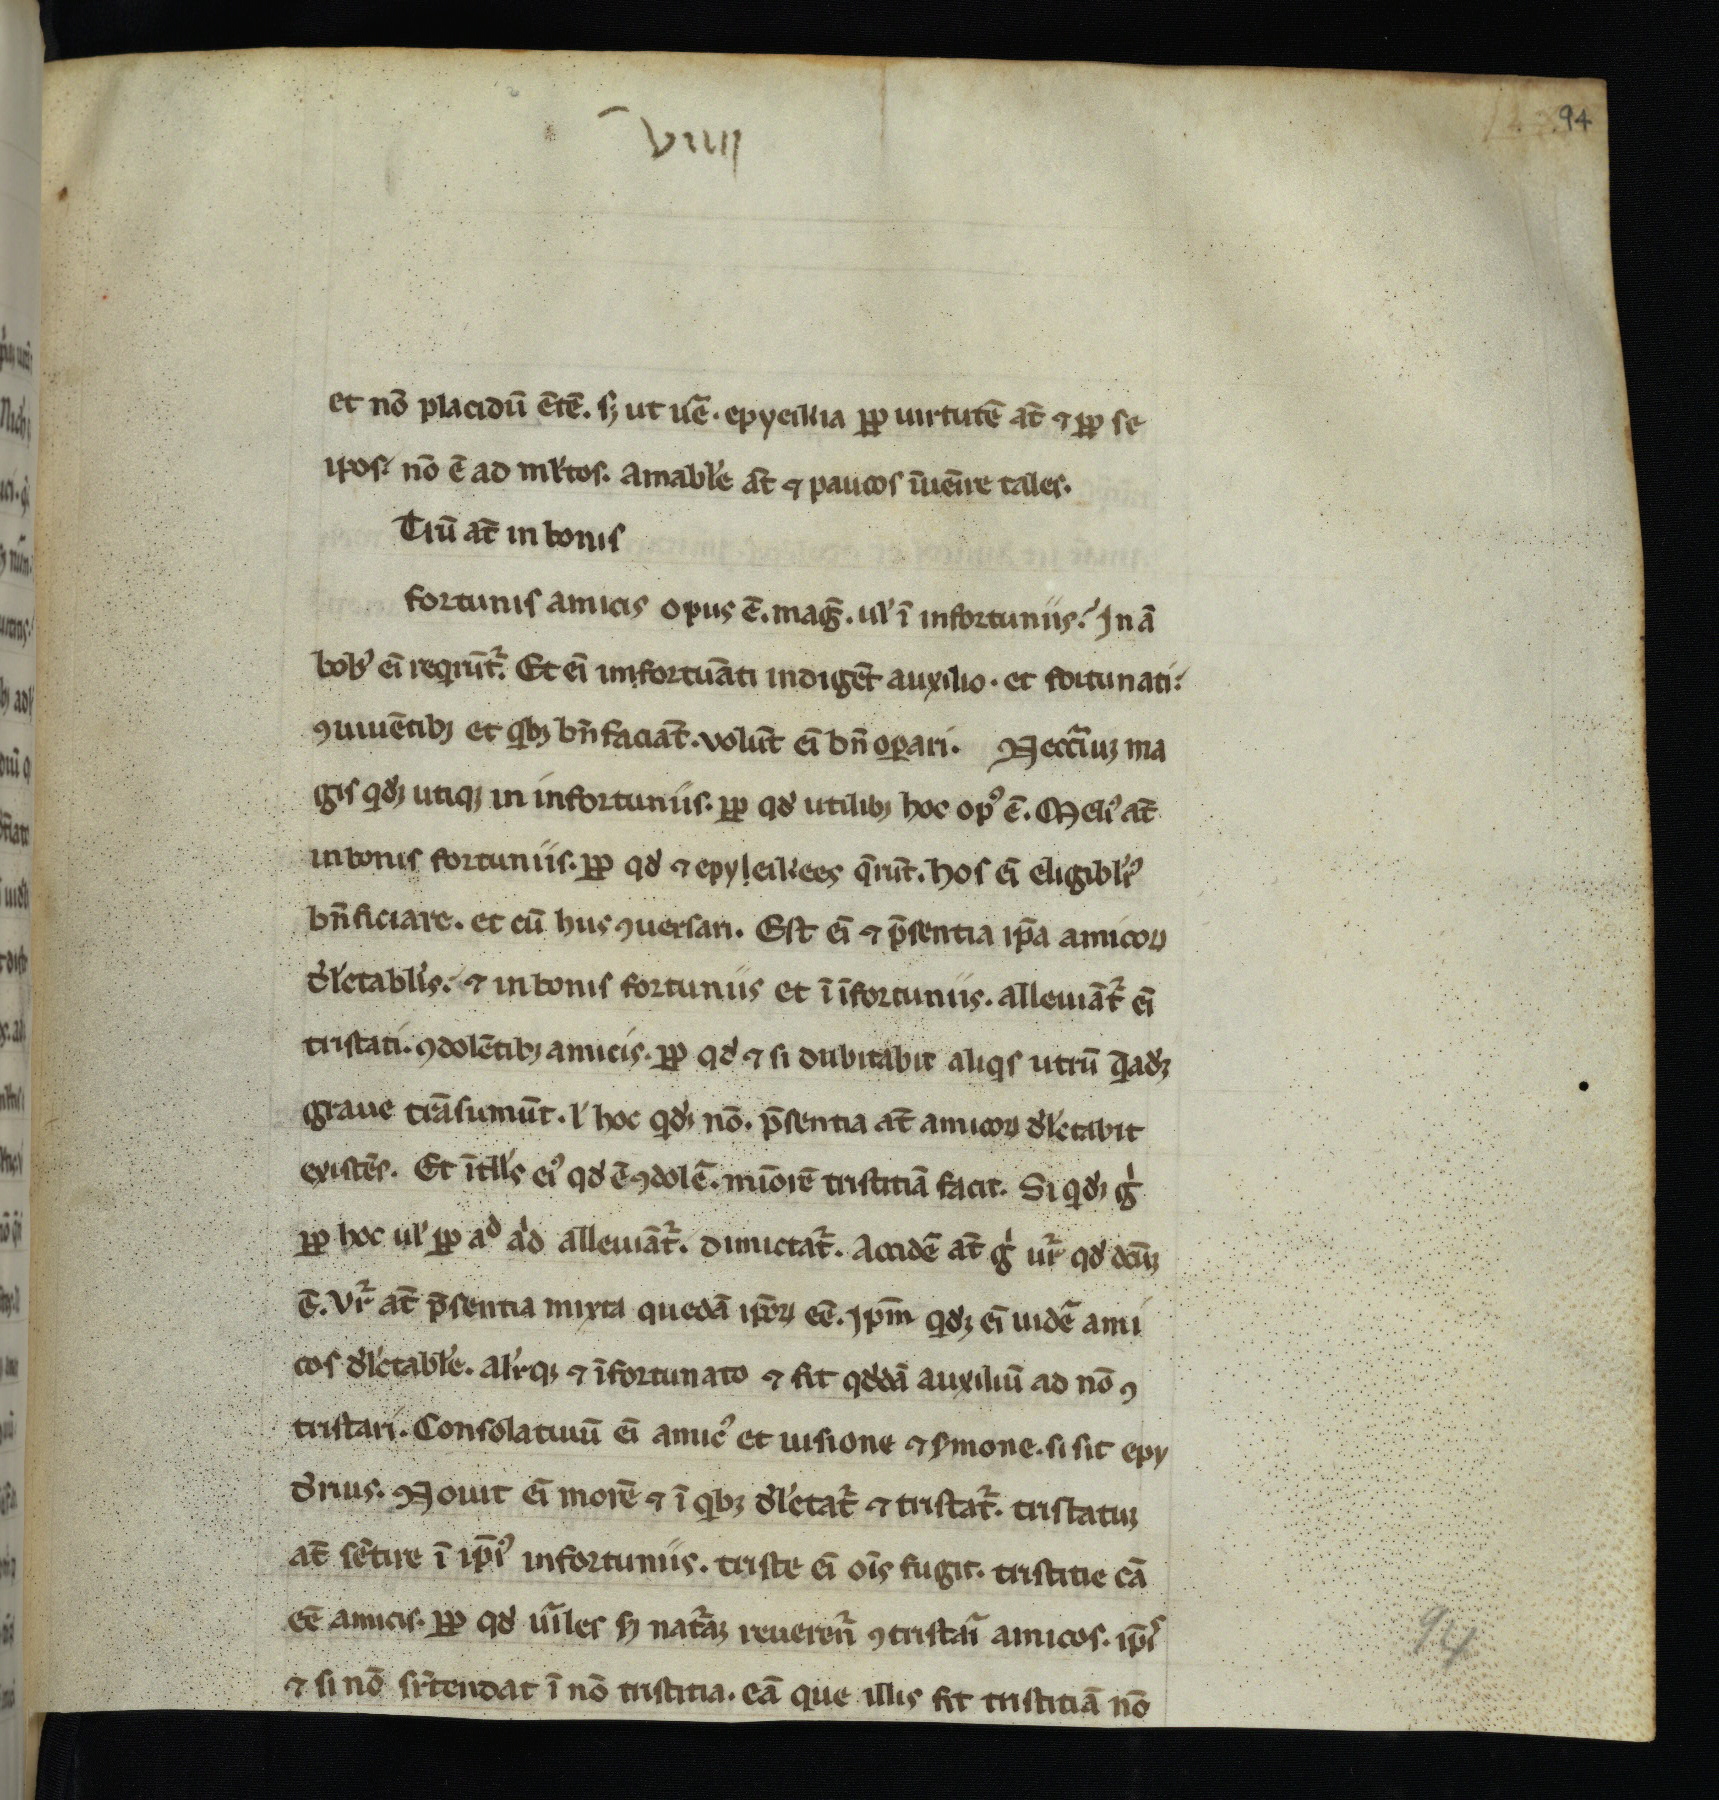 VIIII
94
et nō placidū ēt̄e. sꝫ ut ue᷑. epyeikia ꝓp uirtutē at̄ ⁊ ꝓp se
ip̄os. nō ē ad ml̄tos. Amabil̓e at̄ ⁊ paucos īuēire tales.
Tiū at̄ in bonis
fortunis amicis opus ē. maḡ. ul̓ ī infortuniis. In ā
bobꝰ ei̅ reqrūt᷑. Et ei̅ imfortuāti indigēt auxilio. et fortunati.
ꝯuiuētibꝫ et qbꝫ bn̄ faciāt. volūt ei̅ bn̄ oꝑari. Necc̄iuꝫ ma
gis qdꝫ utiqꝫ in infortuniis. ꝓp qd̓ utilibꝫ hoc opꝰ ē. Meliꝰ at̄
in bonis fortuniis. ꝓp qd̓ ⁊ epyleikees q̄rūt. hos ei̅ eligibl̓iꝰ
bn̄ficiare. et cū hiis ꝯuersari. Est ei̅ ⁊ p̄sentia ip̄a amicoꝝ
d̓l̓ectabl̓is. ⁊ in bonis fortuniis et ī īfortuniis. alleuiāt᷑ ei̅
tristati. ꝯdolētibꝫ amicis. ꝓp qd̓ ⁊ si dubitabit aliqs utrū q̄adꝫ
graue trāsumūt. l̓ hoc qdꝫ nō. p̄sentia at̄ amicoꝝ d̓l̓ectabit
existēs. Et ītll̓s eiꝰ qd̓ ē ꝯdolē᷑. miorē tristitiā facit. Si qdꝫ g̓
ꝓp hoc ul̓ ꝓp ad̓ ad̓ alleuiāt᷑. dimictat᷑. Accidē at̄ g̓ ur᷑ qd̓ dc̄ꝫ
ē. Vr᷑ at̄ p̄sentia mixta quedā ip̄oꝝ eē. Ip̄m qdꝫ ei̅ uidē᷑ ami
cos d̓l̓ectabl̓e. al̓r qꝫ ⁊ īfortunato ⁊ fit qd̓dā auxiliū ad nō ꝯ
tristari. Consolatiuū ei̅ amicꝰ et uisione ⁊ ẜmone. si sit epy
d̓xius. Nouit ei̅ morē ⁊ ī qbꝫ d̓l̓ectat᷑ ⁊ tristat᷑. tristatuꝫ
at̄ sētire ī ip̄iꝰ infortuniis. triste ei̅ oīs fugit. tristitie cā
eē amicis. ꝓp qd̓ uiı᷑les sꝫ nat᷑aꝫ reueren᷑ ꝯtristari᷑ amicos. ip̄iꝰ
⁊ si nō sr̄tendat ī nō tristitia. eā que illis fit tristitiā nō
94